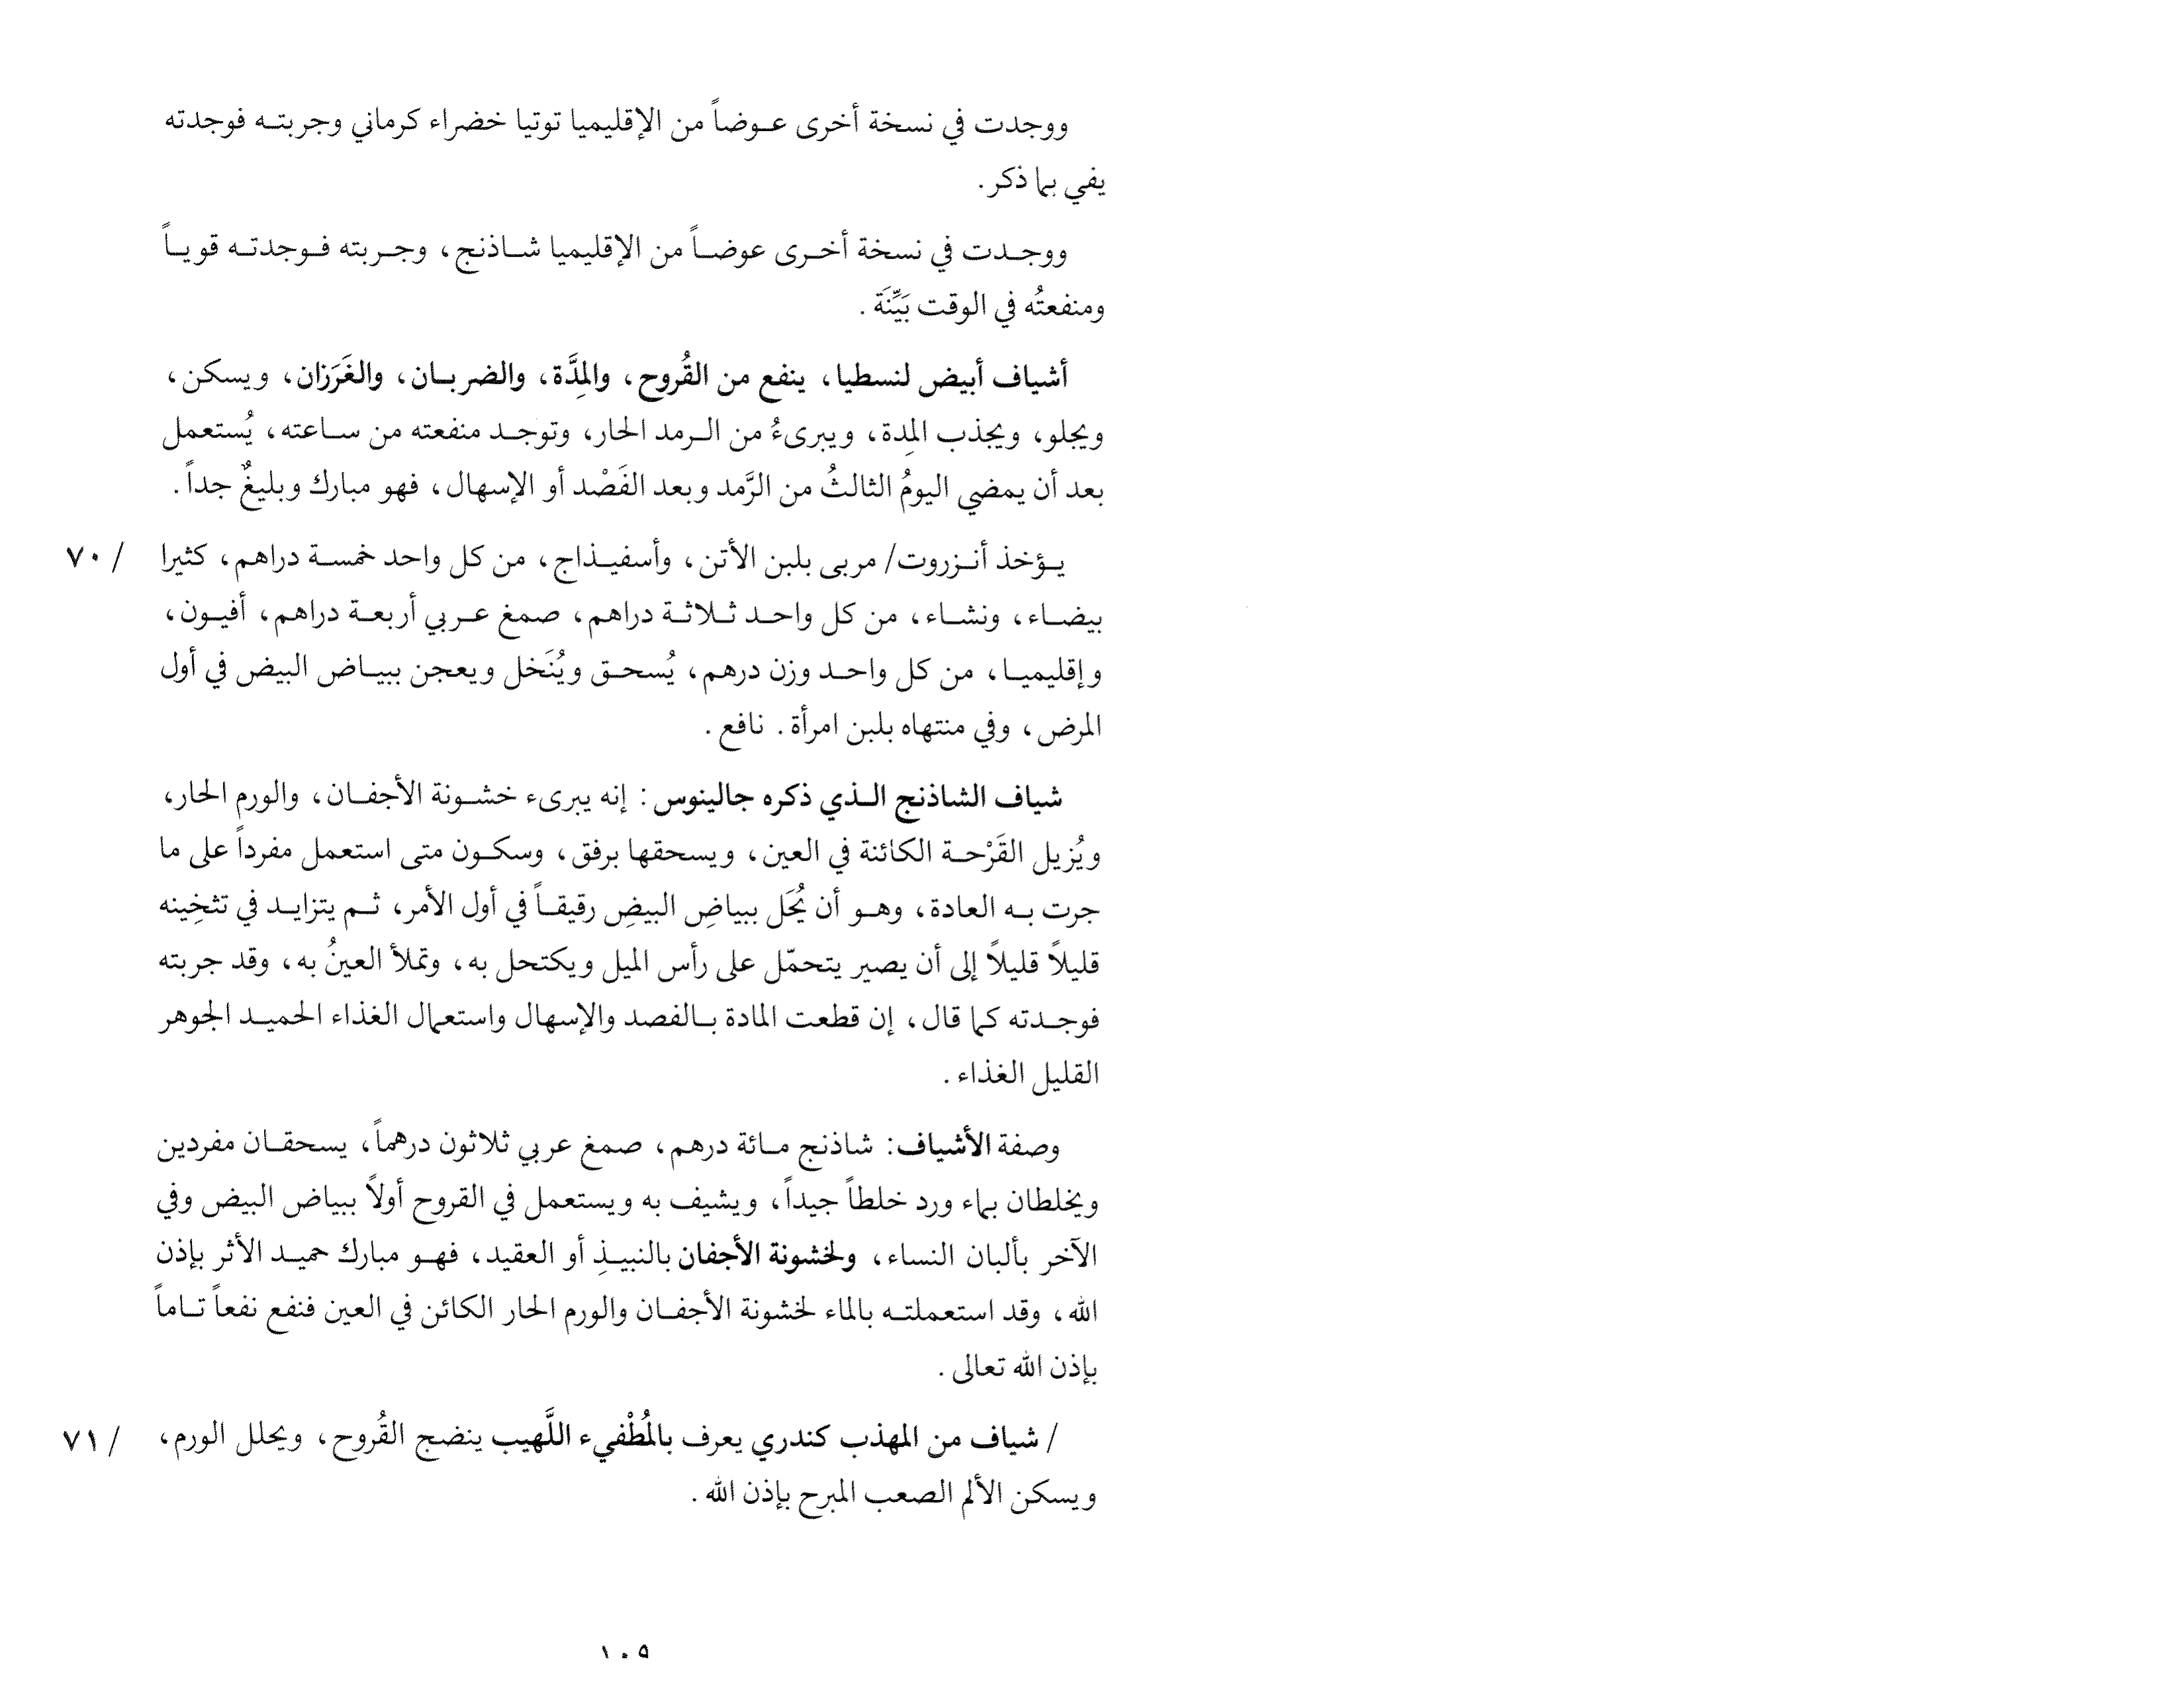 ووجدت في نسخة أخرى عوضاً من الإقليميا توتيا خضراء كرماني وجربته فوجدته
يفي بما ذكر.
ووجدت في نسخة أخرى عوضاً من الإقليميا شاذنج، وجربته فوجدته قوياً
ومنفعتُه في الوقت بَيِّنَة.
أشياف أبيض لنسطيا، ينفع من القُروح، والمِدَّة، والضربان، والغَرَزان، ويسكن،
ويجلو، ويجذب المِدة، ويبرىءُ من الرمد الحار، وتوجد منفعته من ساعته، يُستعمل
بعد أن يمضي اليومُ الثالثُ من الرَّمد وبعد الفَصْد أو الإسهال، فهو مبارك وبليغٌ جداً.
يؤخذ أنزروت/ مربى بلبن الأتن، وأسفيذاج، من كل واحد خمسة دراهم، كثيرا / ٧٠
بيضاء، ونشاء، من كل واحد ثلاثة دراهم، صمغ عربي أربعة دراهم، أفيون،
وإقليميا، من كل واحد وزن درهم، يُسحق ويُنَخل ويعجن ببياض البيض في أول
المرض، وفي منتهاه بلبن امرأة. نافع.
شياف الشاذنج الذي ذكره جالينوس: إنه يبرىء خشونة الأجفان، والورم الحار،
ويُزيل القَرْحة الكائنة في العين، ويسحقها برفق، وسكون متى استعمل مفرداً على ما
جرت به العادة، وهو أن يُحَل ببياضِ البيضِ رقيقاً في أول الأمر، ثم يتزايد في تثخِينه
قليلاً قليلاً إلى أن يصير يتحمّل على رأس الميل ويكتحل به، وتملأ العينُ به، وقد جربته
فوجدته كما قال، إن قطعت المادة بالفصد والإسهال واستعمال الغذاء الحميد الجوهر
القليل الغذاء.
وصفة الأشياف: شاذنج مائة درهم، صمغ عربي ثلاثون درهماً، يسحقان مفردين
ويخلطان بماء ورد خلطاً جيداً، ويشيف به ويستعمل في القروح أولاً ببياض البيض وفي
الآخر بألبان النساء، ولخشونة الأجفان بالنبيذِ أو العقيد، فهو مبارك حميد الأثر بإذن
الله، وقد استعملته بالماء لخشونة الأجفان والورم الحار الكائن في العين فنفع نفعاً تاماً
بإذن الله تعالى.
/ شياف من المهذب كندري يعرف بالمُطْفيء اللَّهيب ينضج القُروح، ويحلل الورم، / ٧١
ويسكن الألم الصعب المبرح بإذن الله.
١٠٩